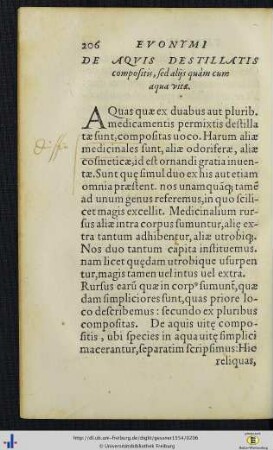 206 EVONYMI
DE AQVIS DESTILLATIS
compositis, sed alijs quàm cum
aqua vitæ.
AQuas quæ ex duabus aut plurib.
medicamentis permixtis destilla
tæ sunt, compositas uoco. Harum aliæ
medicinales sunt, aliæ odoriferæ, aliæ
cosmeticæ, id est ornandi gratia inuen-
tæ. Sunt que simul duo ex his aut etiam
omnia præstent. nos unamquãq; tamẽ
ad unum genus referemus, in quo scili-
cet magis excellit. Medicinalium rur-
sus aliæ intra corpus sumuntur, alię ex
tra tantum adhibentur, aliæ utrobiq;.
Nos duo tantum capita instituemus.
nam licet quędam utrobique usurpen
tur, magis tamen uel intus uel extra.
Rursus earũ quæ in corpꝰ sumunt, quæ
dam simpliciores sunt, quas priore lo-
co describemus: secundo ex pluribus
compositas. De aquis uitę compo-
sitis, ubi species in aqua uitę simplici
macerantur, separatim scripsimus: Hic
reliquas,
http://dl.ub.uni-freiburg.de/diglit/gesner1554/0206
Universitätsbibliothek Freiburg